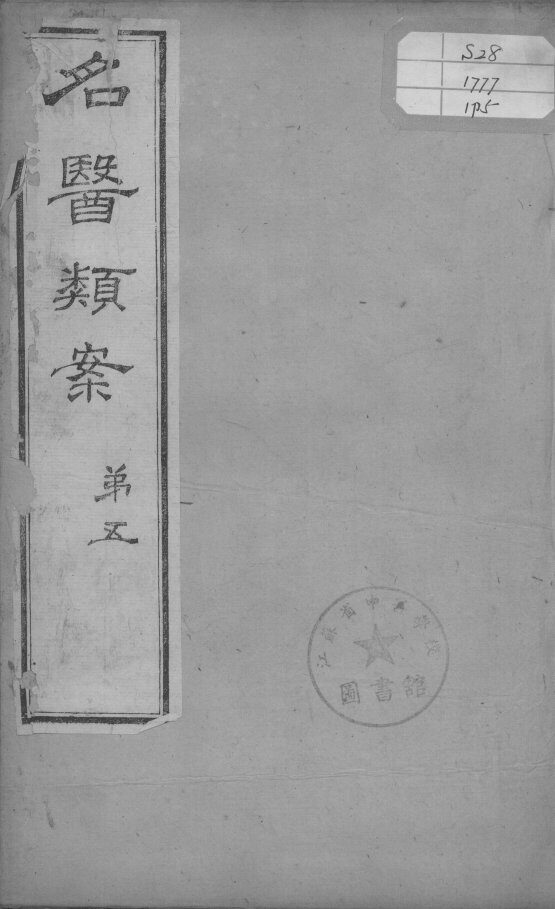 名醫類案
弟五
S28
1777
1P5
江蘇省中醫學校
圖書館